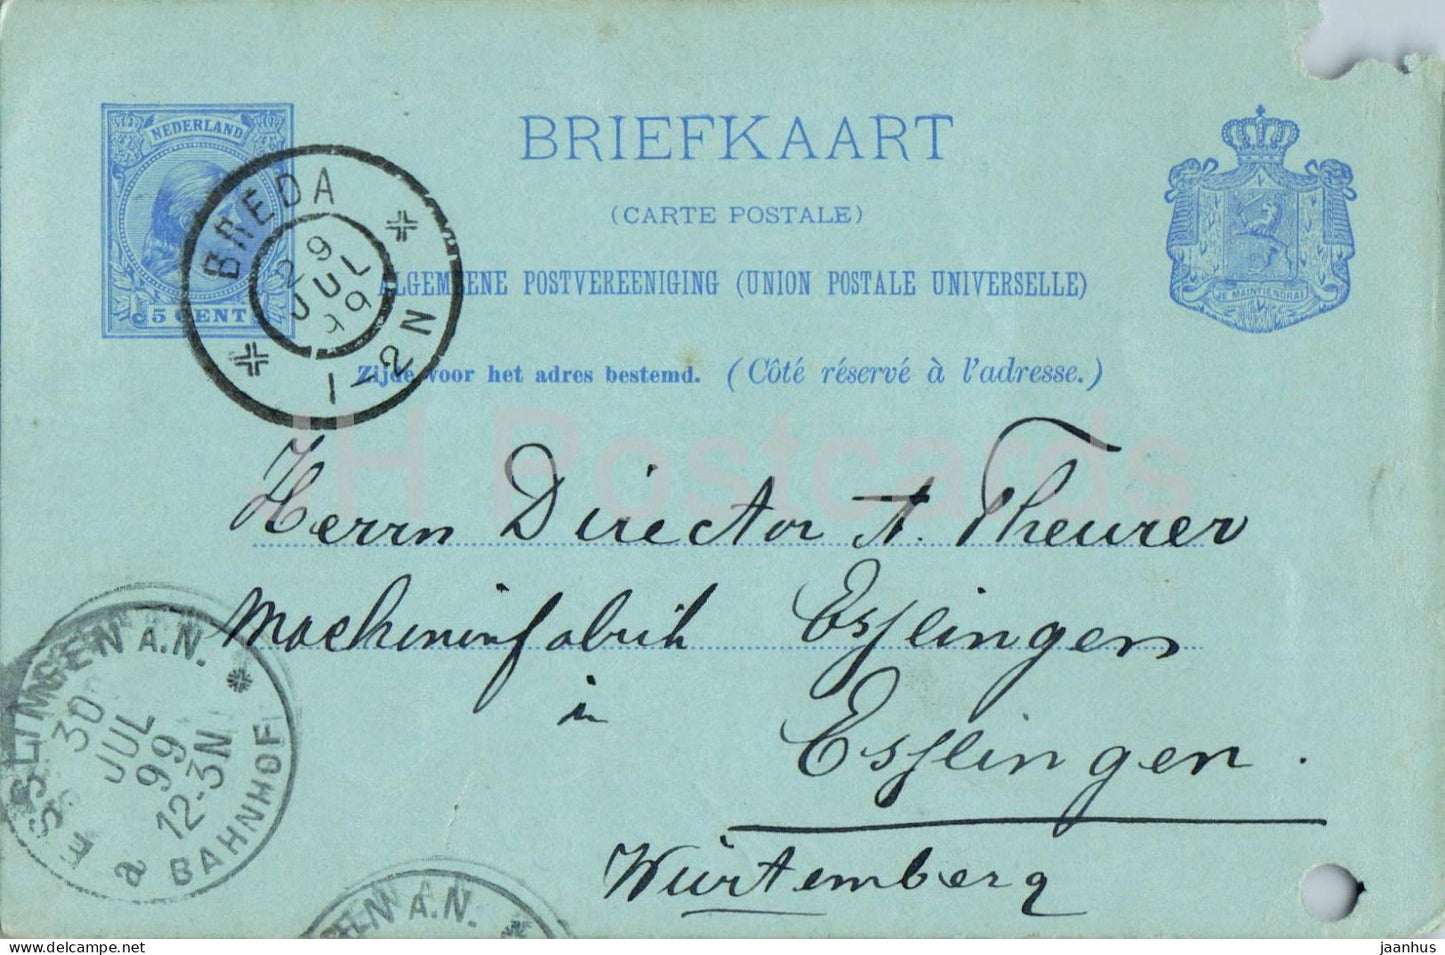 BRIEFKAART
(CARTE POSTALE)
ALGEMEENE POSTVEREENIGING (UNION POSTALE UNIVERSELLE)
Zijde voor het adres bestemd. (Côté réservé à l'adresse.)
NEDERLAND
5 CENT
BREDA
29
JUL
99
1-2N
JE MAINTIENDRAI
JH Postcards
Herrn Director A. Theurer
Maschineninfabrik Esslingen
in
Esslingen.
Würtemberg
ESSLINGEN A.N.
30
JUL
99
12-3N
a BAHNHOF
GEN A.N.
hippostcard.com/store/jhpostcards
jaanhus